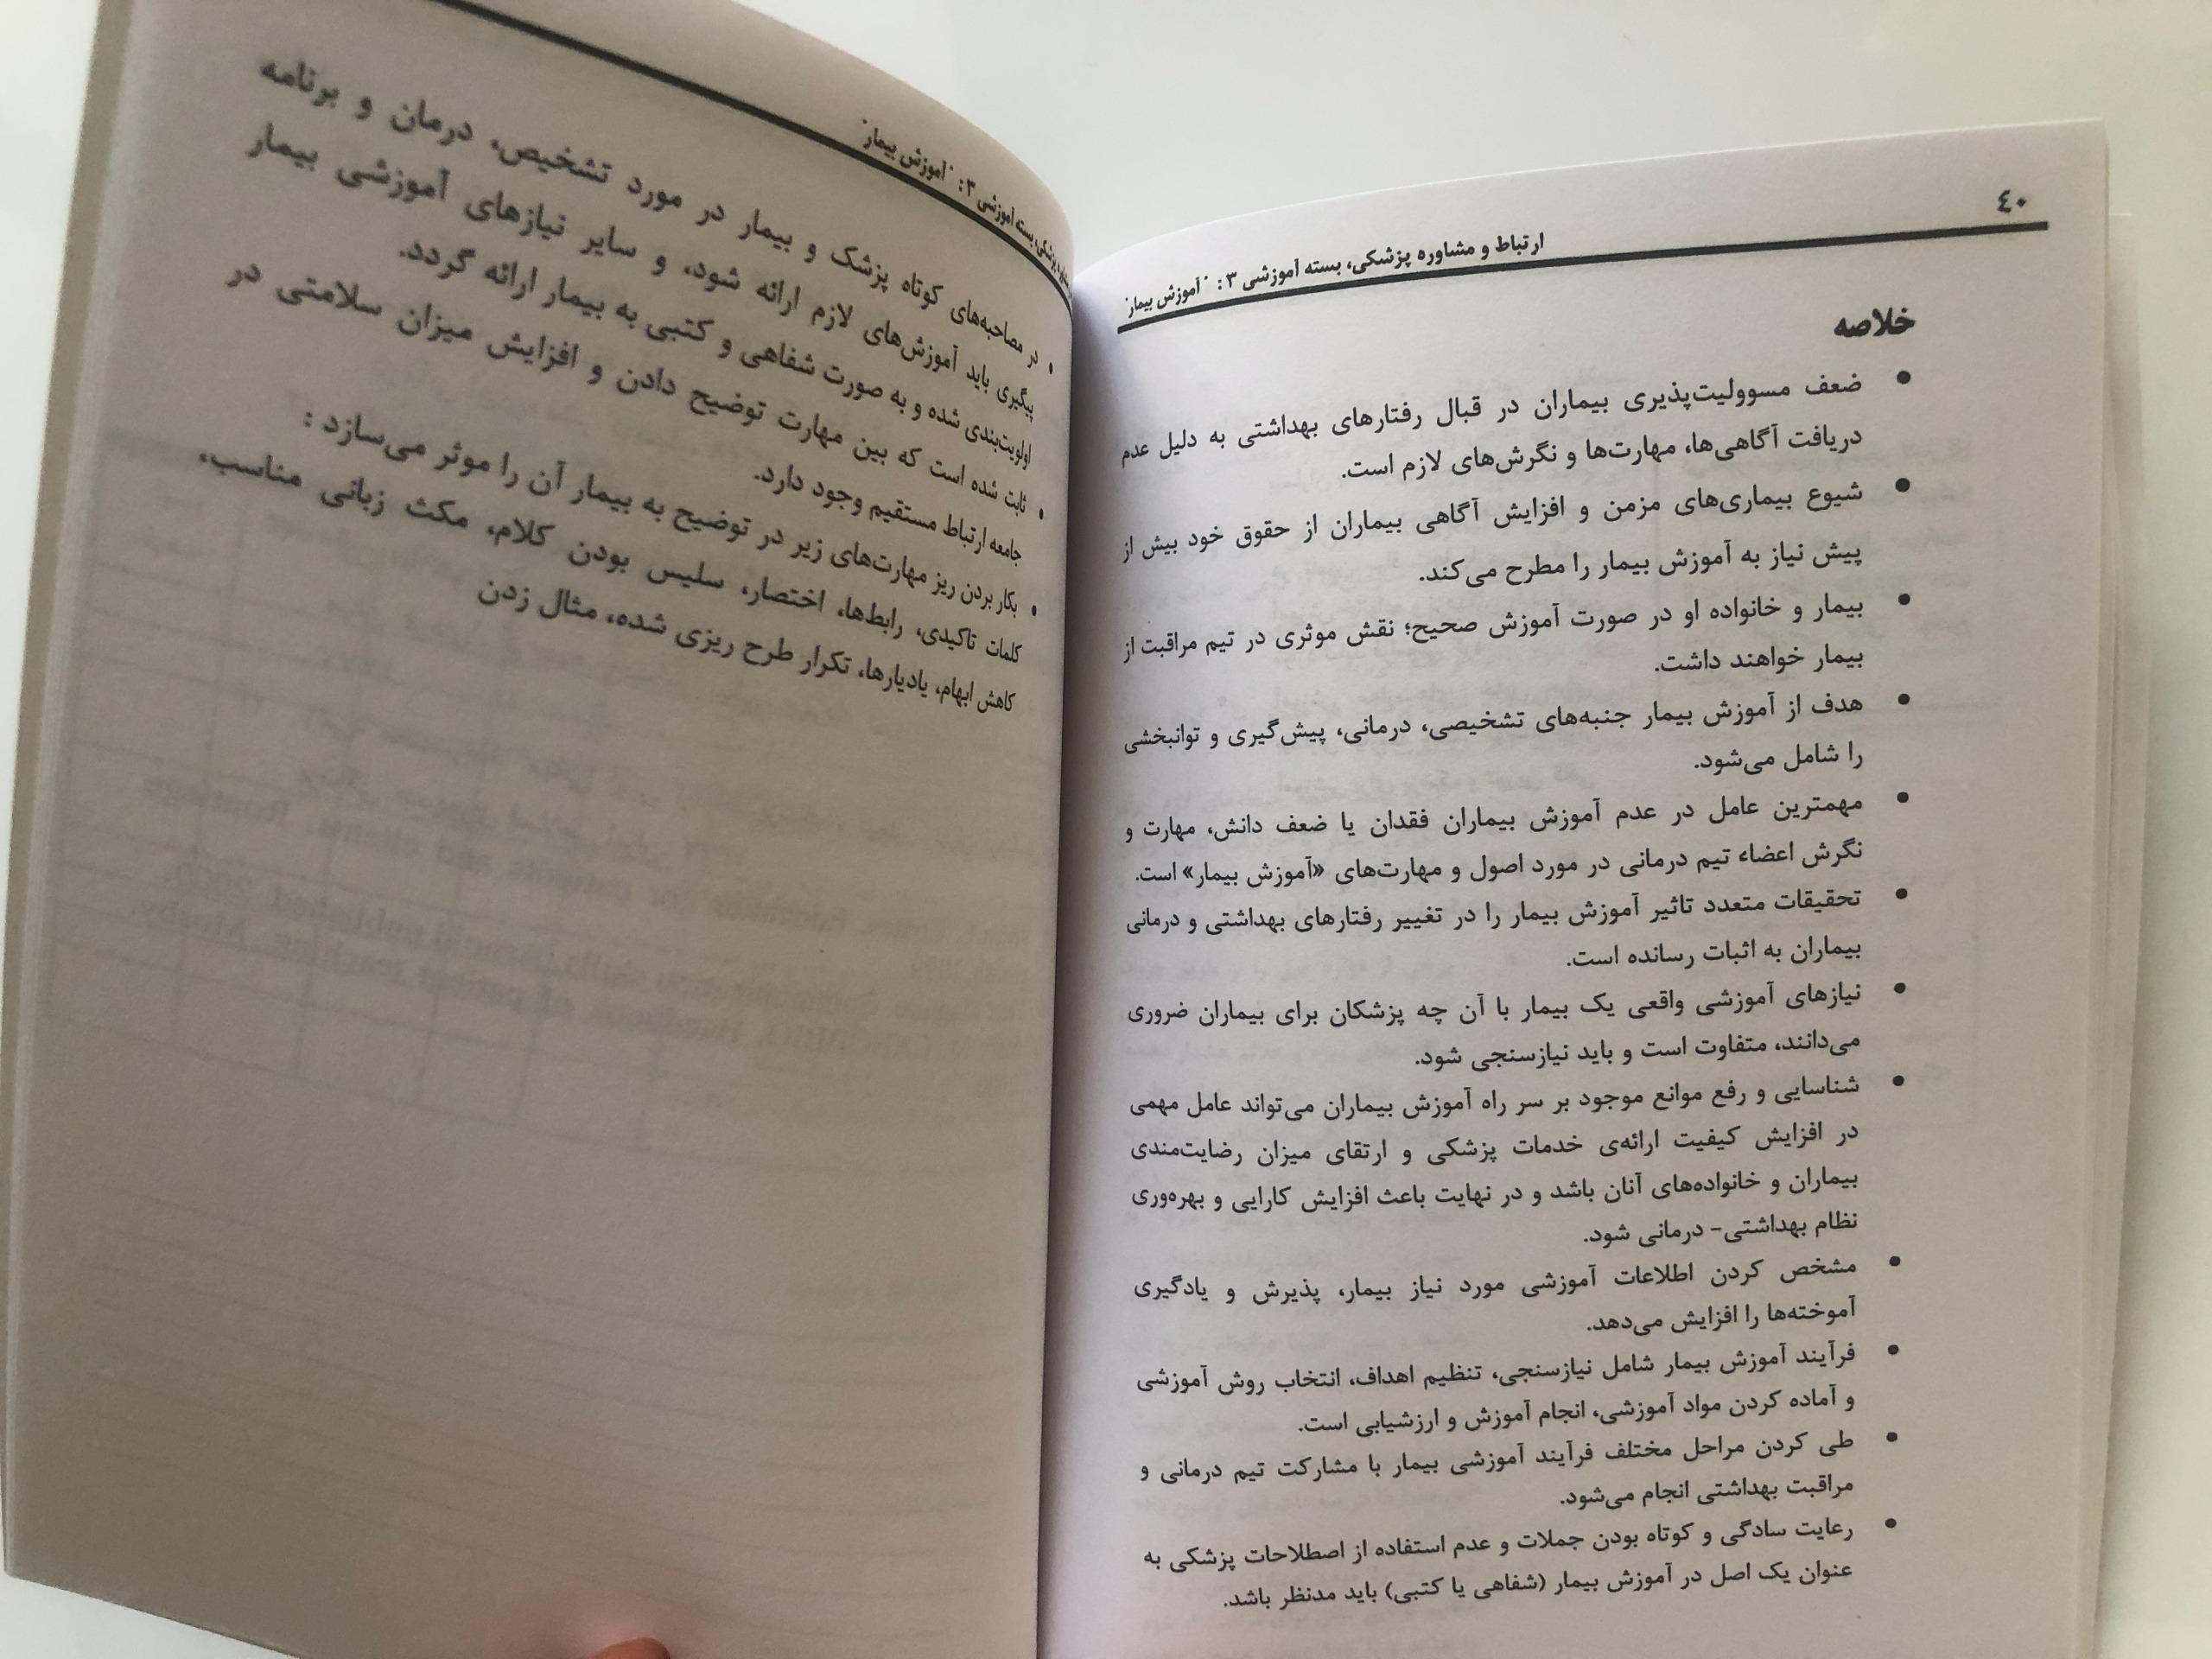 ٤٠
ارتباط و مشاوره پزشکی، بسته آموزشی ۳: "آموزش بیمار"
خلاصه
• ضعف مسوولیت‌پذیری بیماران در قبال رفتارهای بهداشتی به دلیل عدم
دریافت آگاهی‌ها، مهارت‌ها و نگرش‌های لازم است.
• شیوع بیماری‌های مزمن و افزایش آگاهی بیماران از حقوق خود بیش از
پیش نیاز به آموزش بیمار را مطرح می‌کند.
• بیمار و خانواده او در صورت آموزش صحیح؛ نقش موثری در تیم مراقبت از
بیمار خواهند داشت.
• هدف از آموزش بیمار جنبه‌های تشخیصی، درمانی، پیش‌گیری و توانبخشی
را شامل می‌شود.
• مهمترین عامل در عدم آموزش بیماران فقدان یا ضعف دانش، مهارت و
نگرش اعضاء تیم درمانی در مورد اصول و مهارت‌های «آموزش بیمار» است.
• تحقیقات متعدد تاثیر آموزش بیمار را در تغییر رفتارهای بهداشتی و درمانی
بیماران به اثبات رسانده است.
• نیازهای آموزشی واقعی یک بیمار با آن چه پزشکان برای بیماران ضروری
می‌دانند، متفاوت است و باید نیازسنجی شود.
• شناسایی و رفع موانع موجود بر سر راه آموزش بیماران می‌تواند عامل مهمی
در افزایش کیفیت ارائه‌ی خدمات پزشکی و ارتقای میزان رضایت‌مندی
بیماران و خانواده‌های آنان باشد و در نهایت باعث افزایش کارایی و بهره‌وری
نظام بهداشتی- درمانی شود.
• مشخص کردن اطلاعات آموزشی مورد نیاز بیمار، پذیرش و یادگیری
آموخته‌ها را افزایش می‌دهد.
• فرآیند آموزش بیمار شامل نیازسنجی، تنظیم اهداف، انتخاب روش آموزشی
و آماده کردن مواد آموزشی، انجام آموزش و ارزشیابی است.
• طی کردن مراحل مختلف فرآیند آموزشی بیمار با مشارکت تیم درمانی و
مراقبت بهداشتی انجام می‌شود.
• رعایت سادگی و کوتاه بودن جملات و عدم استفاده از اصطلاحات پزشکی به
عنوان یک اصل در آموزش بیمار (شفاهی یا کتبی) باید مدنظر باشد.
پزشکی، بسته آموزشی ۳: "آموزش بیمار"
• در مصاحبه‌های کوتاه پزشک و بیمار در مورد تشخیص، درمان و برنامه
پیگیری باید آموزش‌های لازم ارائه شود، و سایر نیازهای آموزشی بیمار
اولویت‌بندی شده و به صورت شفاهی و کتبی به بیمار ارائه گردد.
• ثابت شده است که بین مهارت توضیح دادن و افزایش میزان سلامتی در
جامعه ارتباط مستقیم وجود دارد.
• بکار بردن ریز مهارت‌های زیر در توضیح به بیمار آن را موثر می‌سازد :
کلمات تاکیدی، رابط‌ها، اختصار، سلیس بودن کلام، مکث زبانی مناسب،
کاهش ابهام، یادیارها، تکرار طرح ریزی شده، مثال زدن